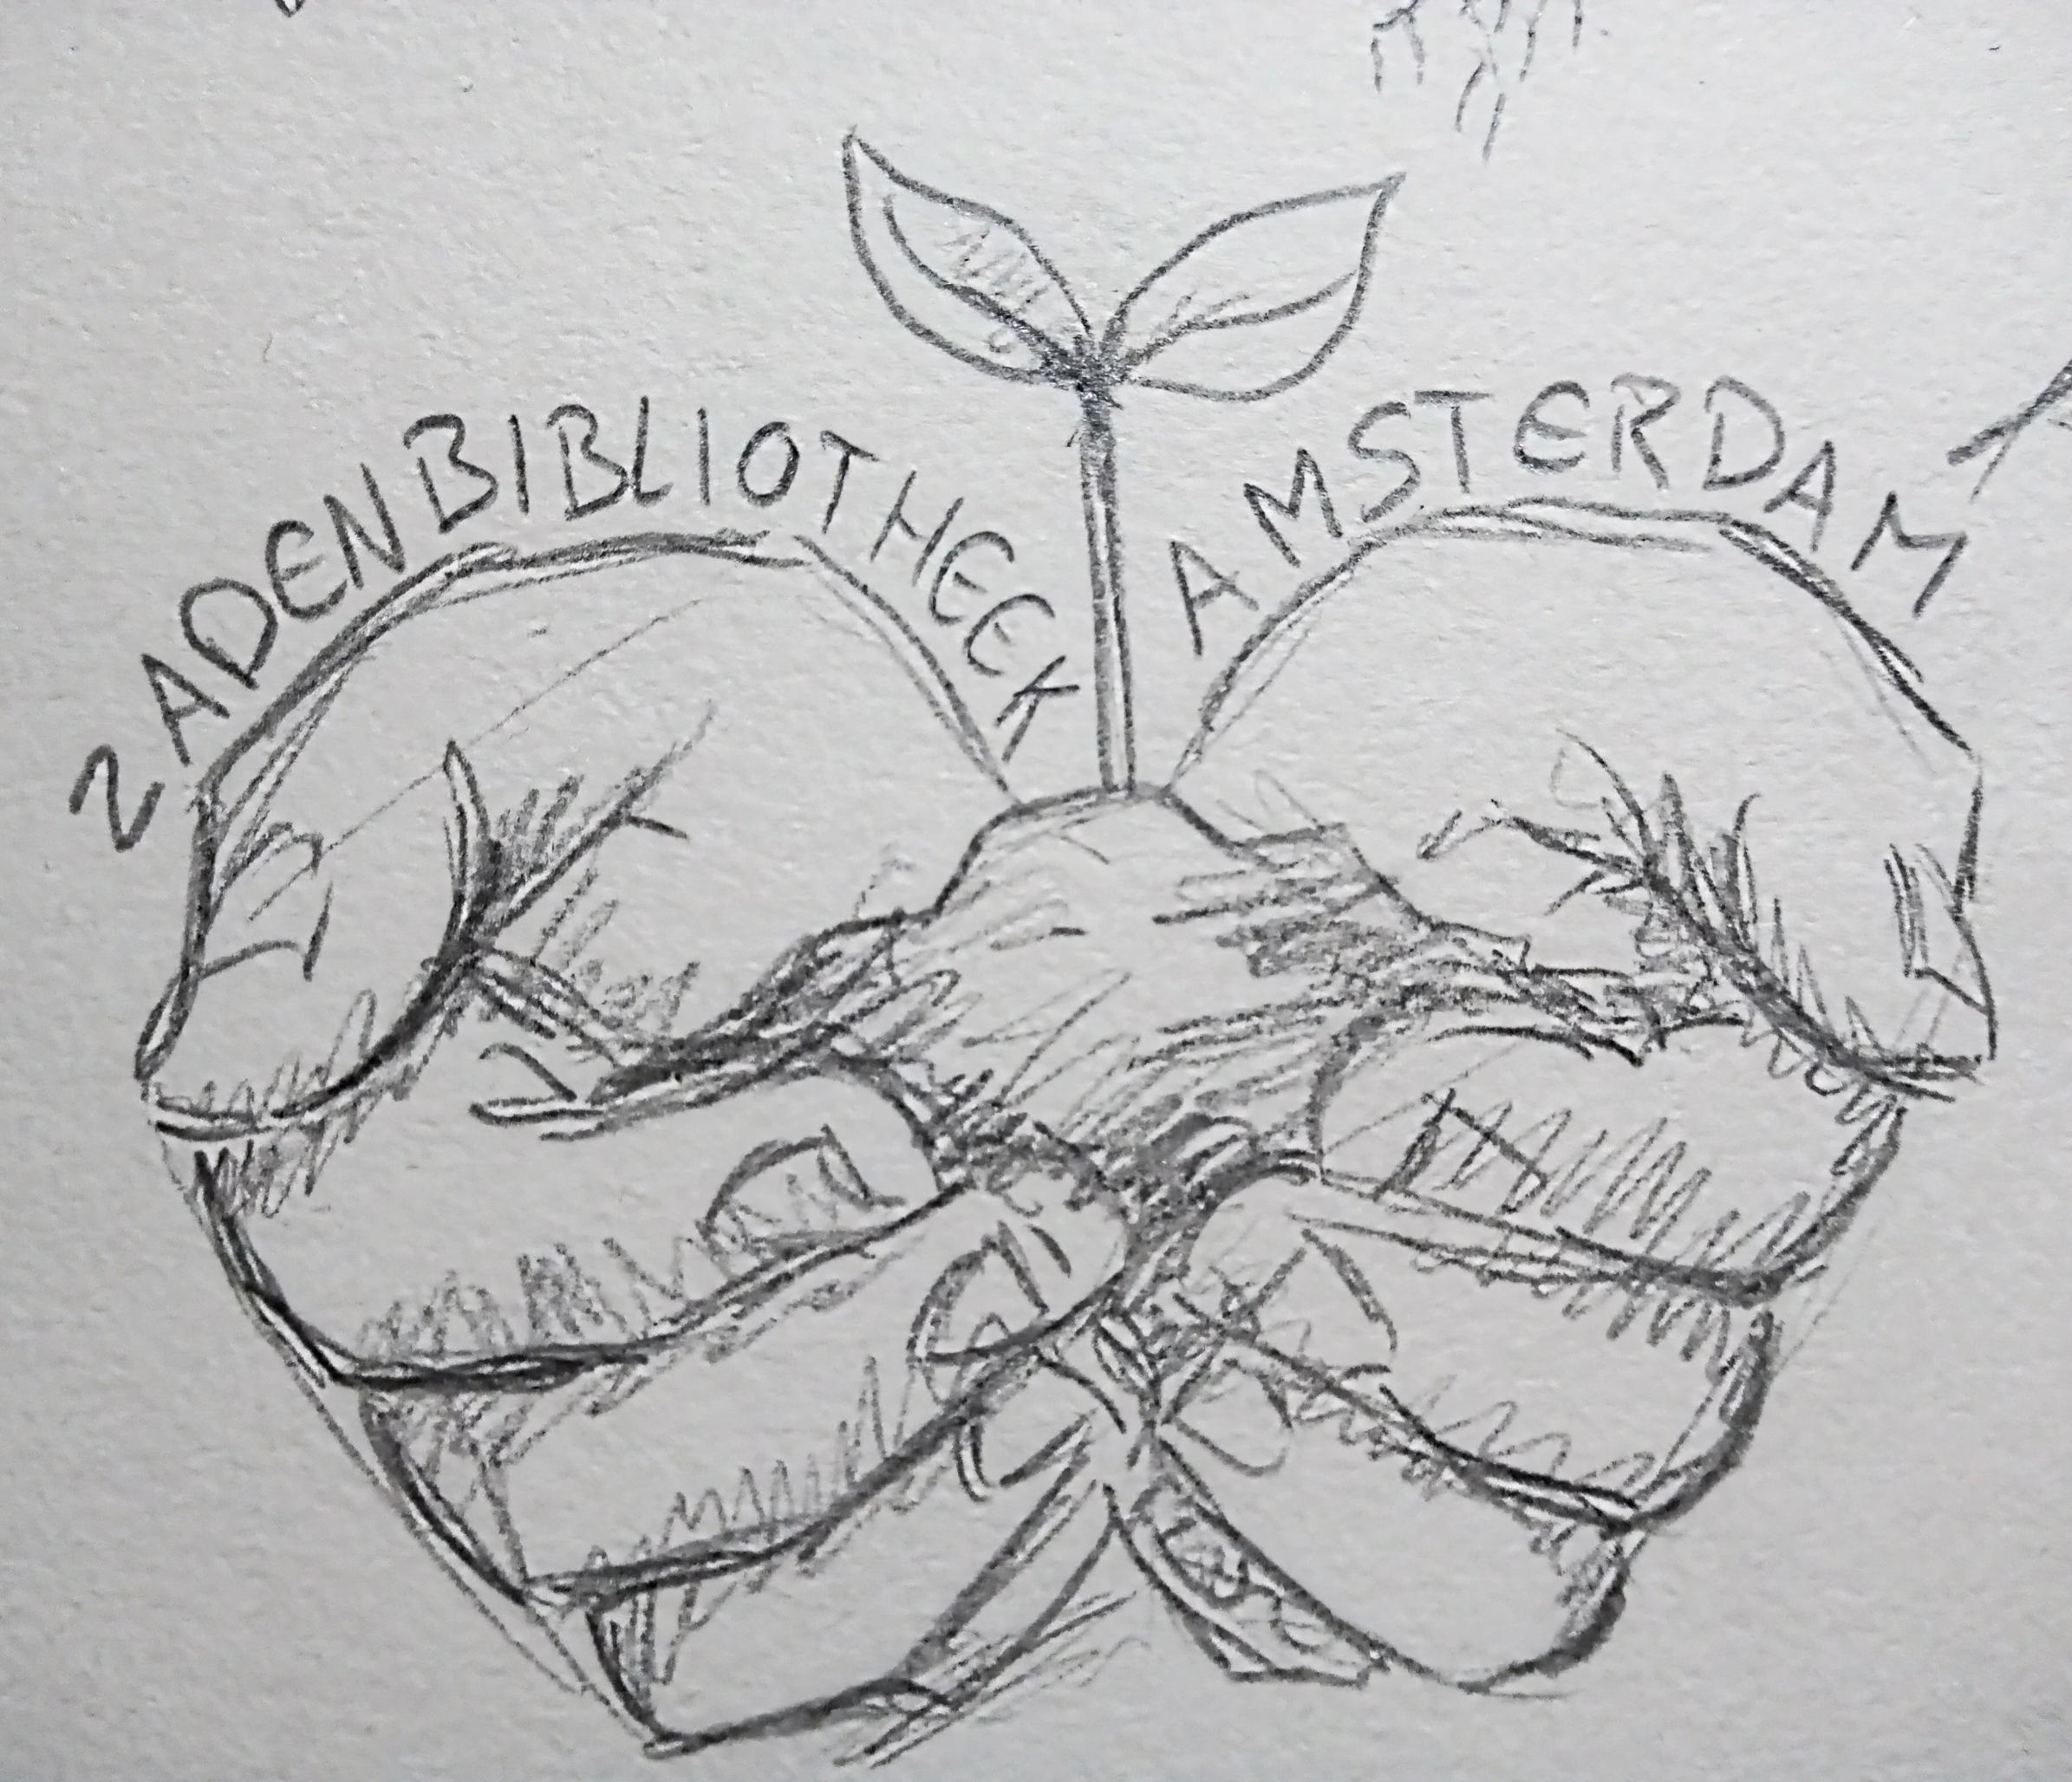 ZADENBIBLIOTHEEK
AMSTERDAM